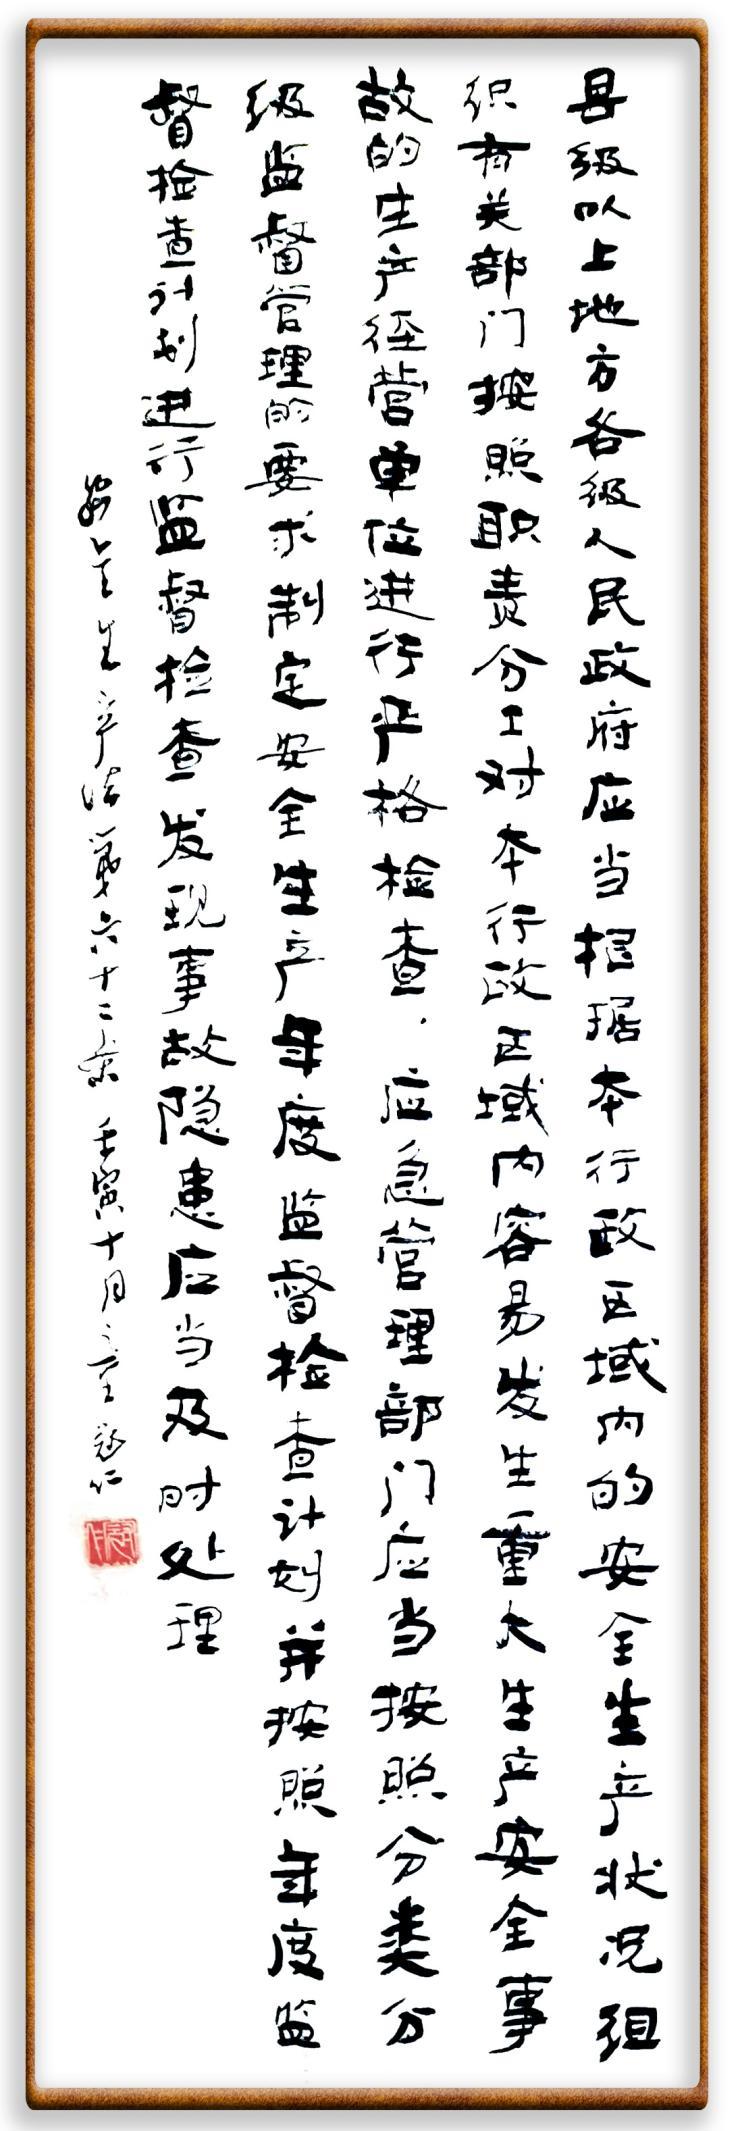 县级以上地方各级人民政府应当根据本行政区域内的安全生产状况组
织有关部门按照职责分工对本行政区域内容易发生重大生产安全事
故的生产经营单位进行严格检查.应急管理部门应当按照分类分
级监督管理的要求制定安全生产年度监督检查计划并按照年度监
督检查计划进行监督检查发现事故隐患应当及时处理
安全生产法第六十二条 壬寅十月